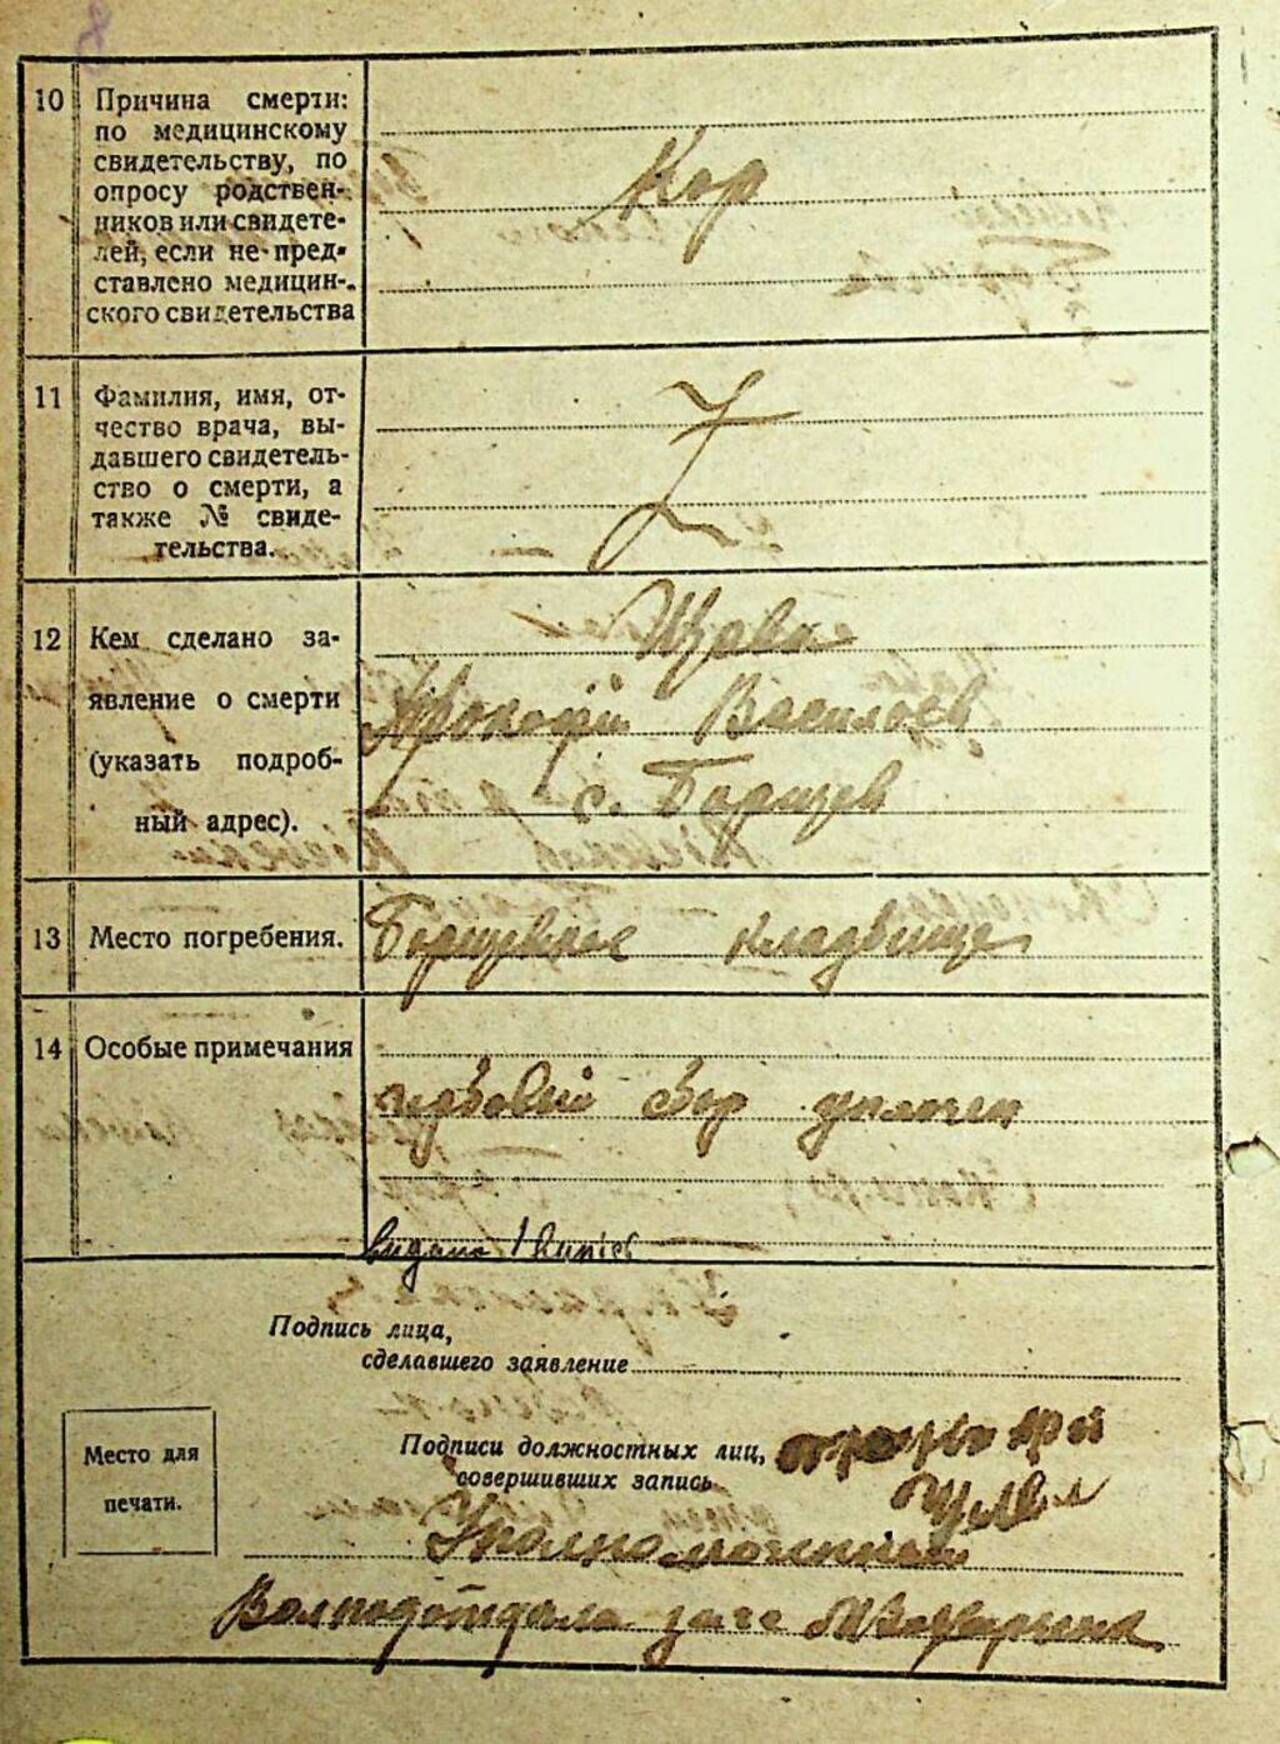 10 Причина смерти:
по медицинскому
свидетельству, по
опросу родствен-
ников или свидете-
лей, если не пред-
ставлено медицин-
ского свидетельства
Кор
11 Фамилия, имя, от-
чество врача, вы-
давшего свидетель-
ство о смерти, а
также № свиде-
тельства.
Z
12 Кем сделано за-
явление о смерти
(указать подроб-
ный адрес).
Прокофий Васильев
с. Борщев
13 Место погребения.
Борщевское кладбище
14 Особые примечания
гербовый сбор уплочен
Подпись лица,
сделавшего заявление
Место для
печати.
Подписи должностных лиц,
совершивших запись
Уполномоченный
Волподотдела загс